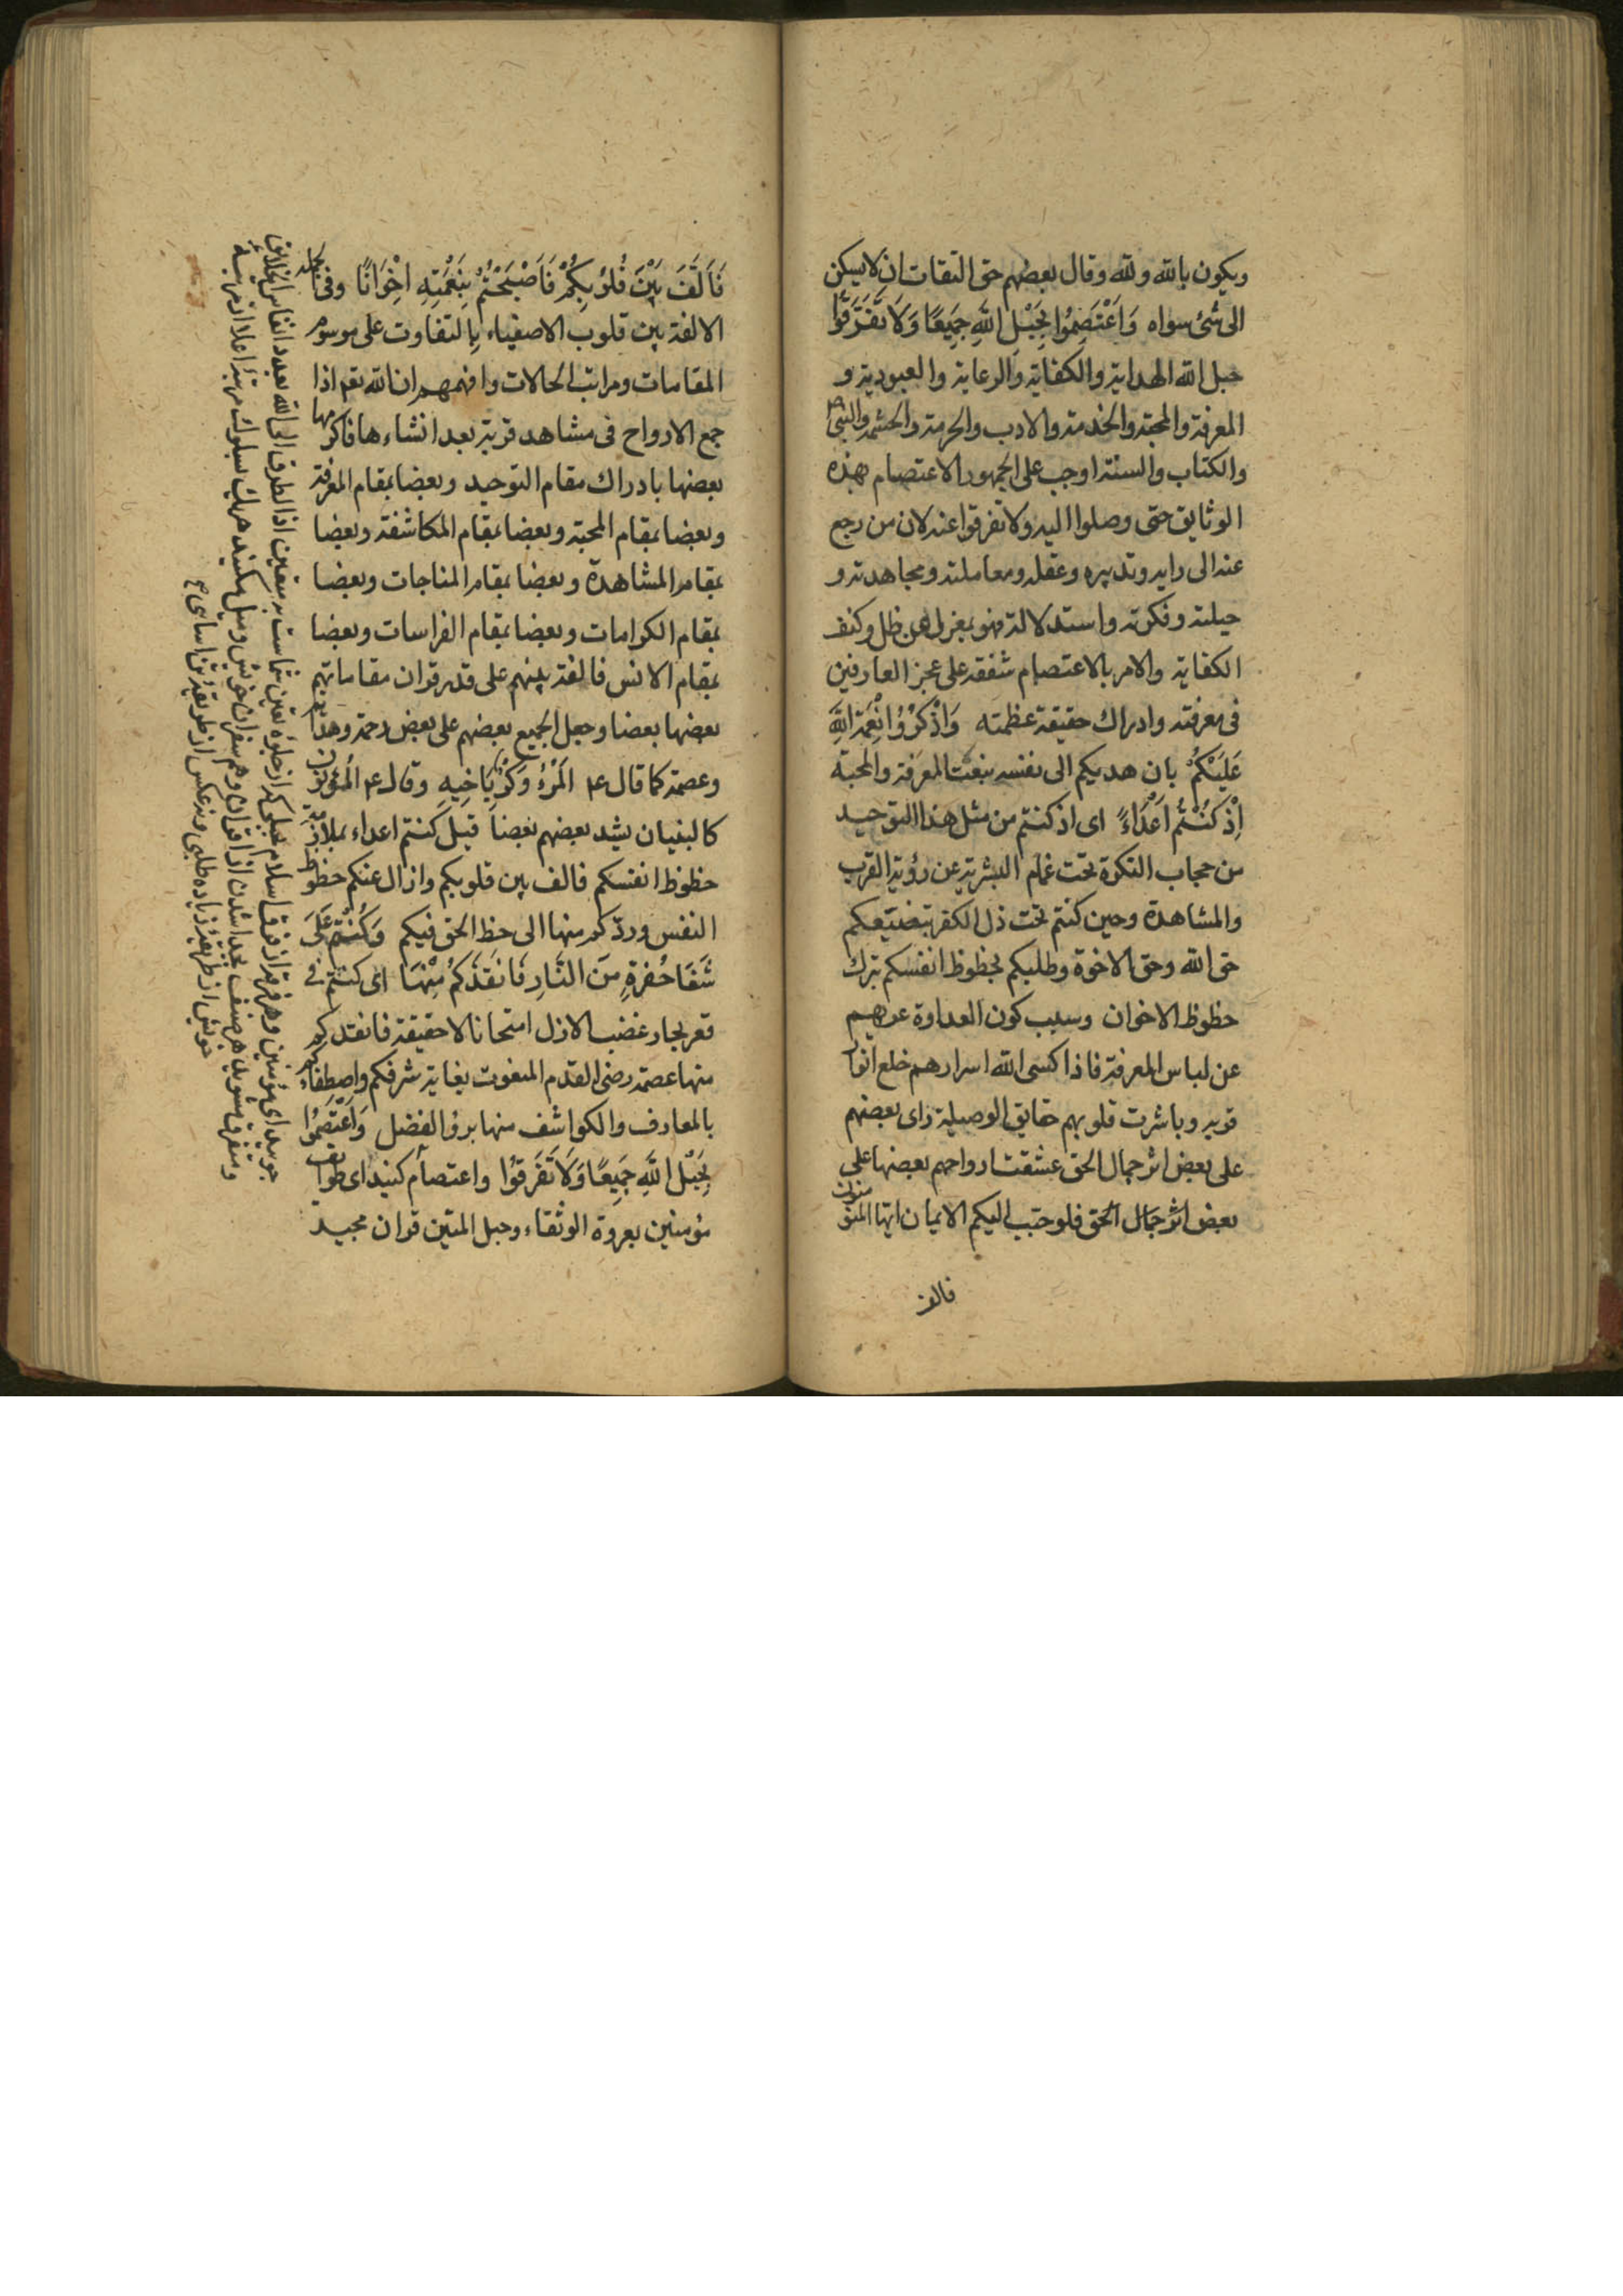 ويكون بالله ولله وقال بعضهم حق التقات ان لا يسكن
الى شئ سواه وَاعْتَصِمُوا بِحَبْلِ اللّٰهِ جَمِيعًا وَلَا تَفَرَّقُوا
حبل الله الهداية والكفاية والرعاية والعبودية و
المعرفة والمحبة والخدمة والادب والحرمة والحشمة والنبى
والكتاب والسنة اوجب على الجمهور الاعتصام بهذه
الوثايق حتى وصلوا اليه ولا تفرقوا عنه لان من رجع
عنه الى رايه وتدبيره وعقله ومعاملته ومجاهدته و
حيلته وفكرته واستدلالته فهو بمعزل عن ظل وكنف
الكفاية والامر بالاعتصام شفقة على عجز العارفين
فى معرفته وادراك حقيقة عظمته وَاذْكُرُوْا نِعْمَةَ اللّٰهِ
عَلَيْكُمْ بان هديكم الى نفسه بنعت المعرفة والمحبة
اِذْ كُنْتُمْ اَعْدَاءً اى اذ كنتم من مثل هذا التوحيد
من حجاب النكرة تحت غمام البشرية عن رؤية القرب
والمشاهدة وحين كنتم تحت ذل الكفر بتضييعكم
حق الله وحق الاخوة وطلبكم لحظوظ انفسكم بترك
حظوظ الاخوان وسبب كون العداوة عريهم
عن لباس المعرفة فاذا كسى الله اسرارهم خلع انوار
قربه وباشرت قلوبهم حقايق الوصيلة راى بعضهم
على بعض اثر جمال الحق عشقت ارواحهم بعضها على
بعض اثر جمال الحق فلو حبب اليكم الايمان ايها المؤمنون
فالف
فَاَلَّفَ بَيْنَ قُلُوبِكُمْ فَاَصْبَحْتُمْ بِنِعْمَتِهِ اِخْوَانًا وفى الجملة
الالفة بين قلوب الاصفياء بالتفاوت على موسوم
المقامات ومراتب الحالات وافهمهم ان الله تعم اذا
جمع الارواح فى مشاهد قربة بعد انشاءها فاكرمها
بعضها بادراك مقام التوحيد وبعضا بمقام المعرفة
وبعضا بمقام المحبة وبعضا بمقام المكاشفة وبعضا
بمقام المشاهدة وبعضا بمقام المناجات وبعضا
بمقام الكرامات وبعضا بمقام الفراسات وبعضا
بمقام الانس فالفة بينهم على قدر قران مقاماتهم
بعضها بعضا وجعل الجميع بعضهم على بعض رحمة وهداية
وعصمة كما قال ع م اَلْمَرْءُ كَثِيرٌ بِاَخِيهِ وقال ع م المؤمنون
كالبنيان يشد بعضهم بعضا قيل كنتم اعداء بملازمة
حظوظ انفسكم فالف بين قلوبكم وازال عنكم حظوظ
النفس وردّكم منها الى حظ الحق فيكم وَكُنْتُمْ عَلَى
شَفَا حُفْرَةٍ مِنَ النَّارِ فَانْقَذَكُمْ مِنْهَا اى كنتم فى
قعر بحار غضب الازل امتحانا لا حقيقة فانقذكم
منها عصمة رضى القدم المنعوت بغاية شرفكم واصطفائكم
بالمعارف والكواشف منها برؤ الفضل وَاعْتَصِمُوا
بِحَبْلِ اللّٰهِ جَمِيعًا وَلَا تَفَرَّقُوْا واعتصام كنيد اى طوايف
مؤمنين بعروة الوثقاء وحبل المتين قران مجيد
جوييد اى مؤمنين وهر فرقه از فرق اسلام از جلوه يقين است بر مقتضى اذ الطرق الى الله بعدد انفاس الخلايق
ومتفرق مشويد هر صنف جدا شدن از اقران وهم سفران خويش وميل مكنيد هر يك سلوك مرتبه اعلا از مرتبه
خويش از طريقه زياده طلبى ونه عكس از طريقه تن اسايى